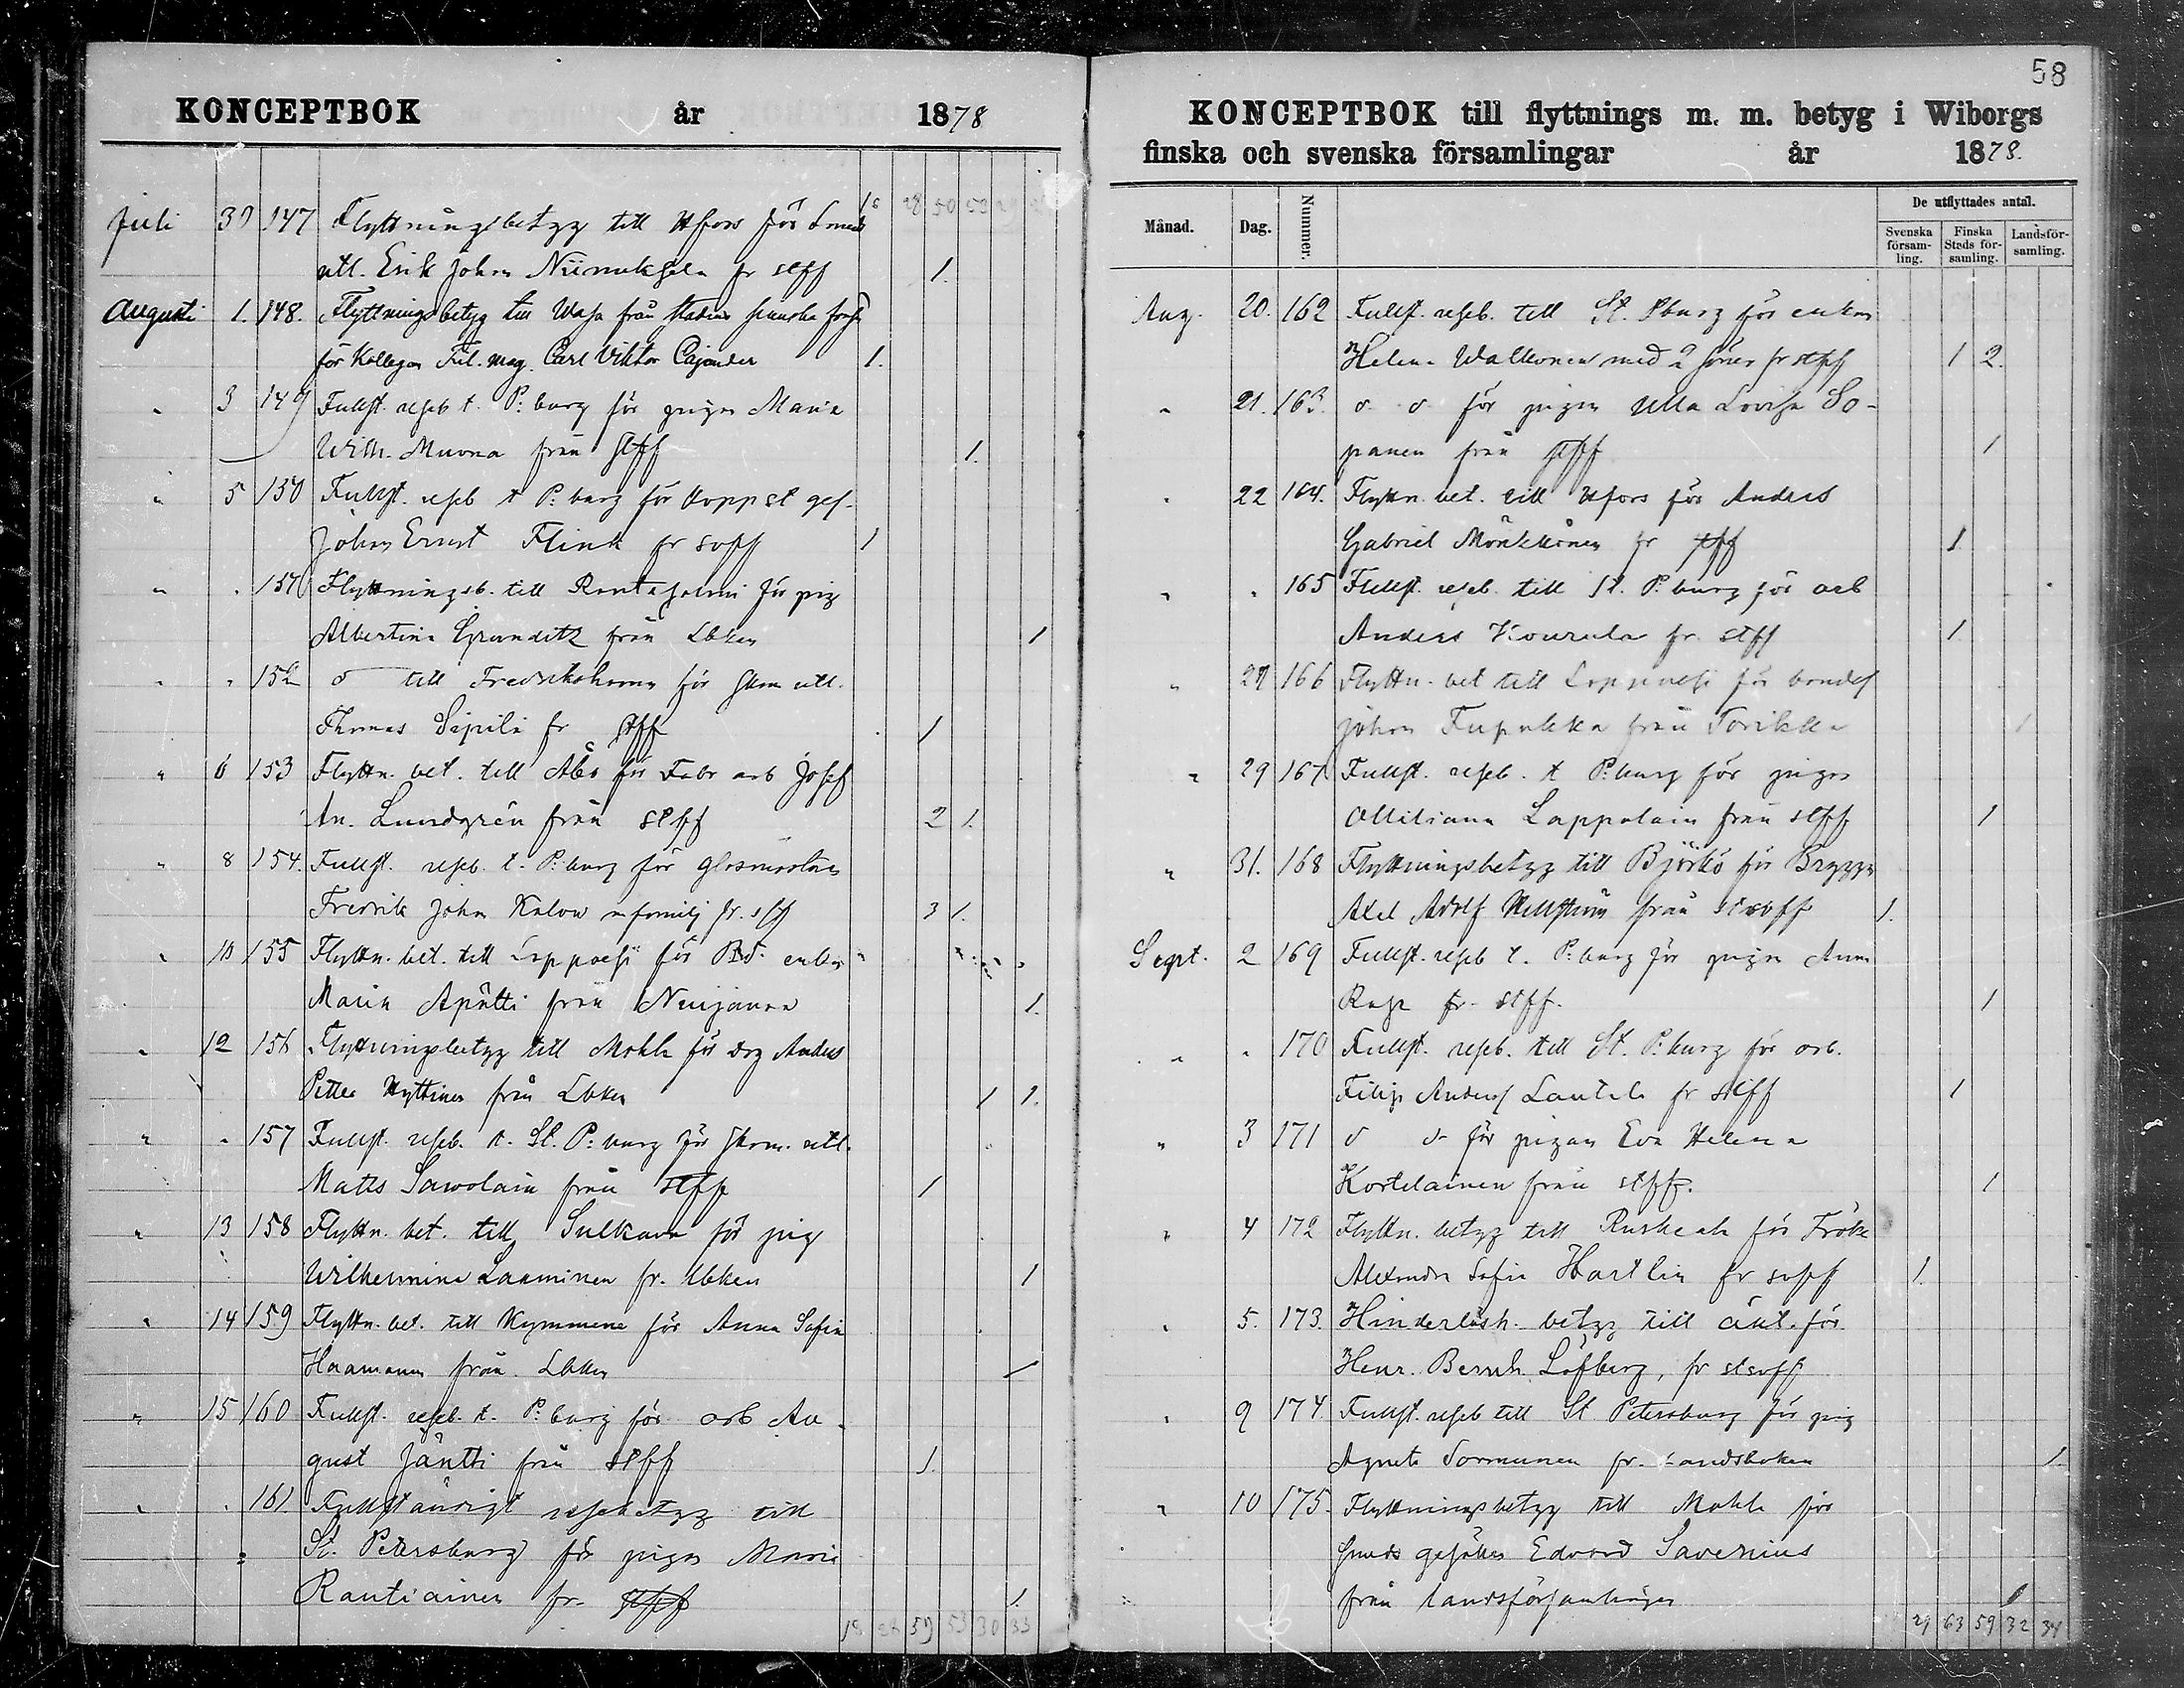 KONCEPTBOK år 1878
Juli 30 147 Flyttningsbetyg till Hfors för Smeds
utl. Erik Johan fr stff 1.
Augusti 1. 148. Flyttningsbetyg till Wasa från stadens svenska förs.
för Kollegan Fil. mag. Carl Viktor Cajander 1.
" 3 149 Fullst. reseb t. P:burg för pigan Maria
Wilh. Muona från stff 1.
" 5 150 Fullst. reseb t P:burg för Kopp sl ges.
Johan Ernst Flink fr svff 1
" " 151 Flyttningsb. till Rantasalmi för pig
Albertina från Lbken 1
" " 152 o till Fredrikshamn för skom utl.
Thomas Sipilä fr stff 1
" 6 153 Flyttn. bet. till Åbo för Fabr arb Josef
An. Lundgrén från stff 2 1.
" 8 154. Fullst. reseb. t. P:burg för glasmästar
Fredrik Johan m familj fr. stff 3 1.
" 10 155 Flyttn. bet. till Loppvesi för Bd. enka
Maria Apätti från 1.
" 12 156 Flyttningsbetyg till Mohla för drg Anders
Petter Hyttinen från Lbken 1 1.
" " 157 Fullst. reseb. t. St. P:burg för skom. utl.
Matts Sawolain från stff 1
" 13 158 Flyttn. bet. till Sulkava för pig
Wilhelmina Laaminen fr. Lbken 1
" 14 159 Flyttn. bet. till Kymmene för Anna Sofia
från Lbken 1
" 15 160 Fullst. reseb. t. P:burg för arb Au-
gust Jäntti från stff 1.
" " 161. Fullständigt resebetyg till
St. Petersburg för pigan Maria
Rautiainen fr. stff 1.
57 53 30 33
58
KONCEPTBOK till flyttnings m. m. betyg i Wiborgs
finska och svenska församlingar år 1878.
Månad. Dag. Nummer. De utflyttades antal.
Svenska församling. Finska Stads församling. Landsförsamling.
Aug. 20. 162 Fullst. reseb. till St. Pburg för enkan
Helena Walkonen med 2 söner fr stff 1 2.
" 21. 163. o o för pigan Ulla Lovisa So-
panen från stff 1
" 22 164. Flyttn. bet. till Hfors för Anders
Gabriel Mönkkönen fr stff 1
" " 165 Fullst. reseb. till St. P:burg för arb
Anders Kourula fr. stff 1.
" 27 166 Flyttn. bet till Loppvesi för bondes
Johan från Torikka 1
" 29 167. Fullst. reseb. t P:burg för pigan
Lappalain från stff 1
" 31. 168 Flyttningsbetyg till Björkö för
Axel Adolf Hellström från stsvff 1.
Sept. 2 169 Fullst. reseb t. P:burg för pigan Anna
fr. stff. 1
" " 170 Fullst. reseb. till St. P:burg för arb.
Filip Anders Lautala fr stff 1
" 3 171 o o för pigan Eva Helena
Kortelainen från stff. 1
" 4 172 Flyttn. betyg till Ruskeala för Frök
Alexandra Sofia Hartlin fr svff 1.
" 5. 173. Hinderlösh. betyg till äkt. för
Henr. Bernh. Löfberg, fr stsvff
" 9 174. Fullst. reseb till St Petersburg för pig
Agneta Sormunen fr. Landsboken 1.
" 10 175. Flyttningsbetyg till Mohla för
smeds gesällen Edvard Savenius
från landsförsamlingen 1
29 63 59 32 34